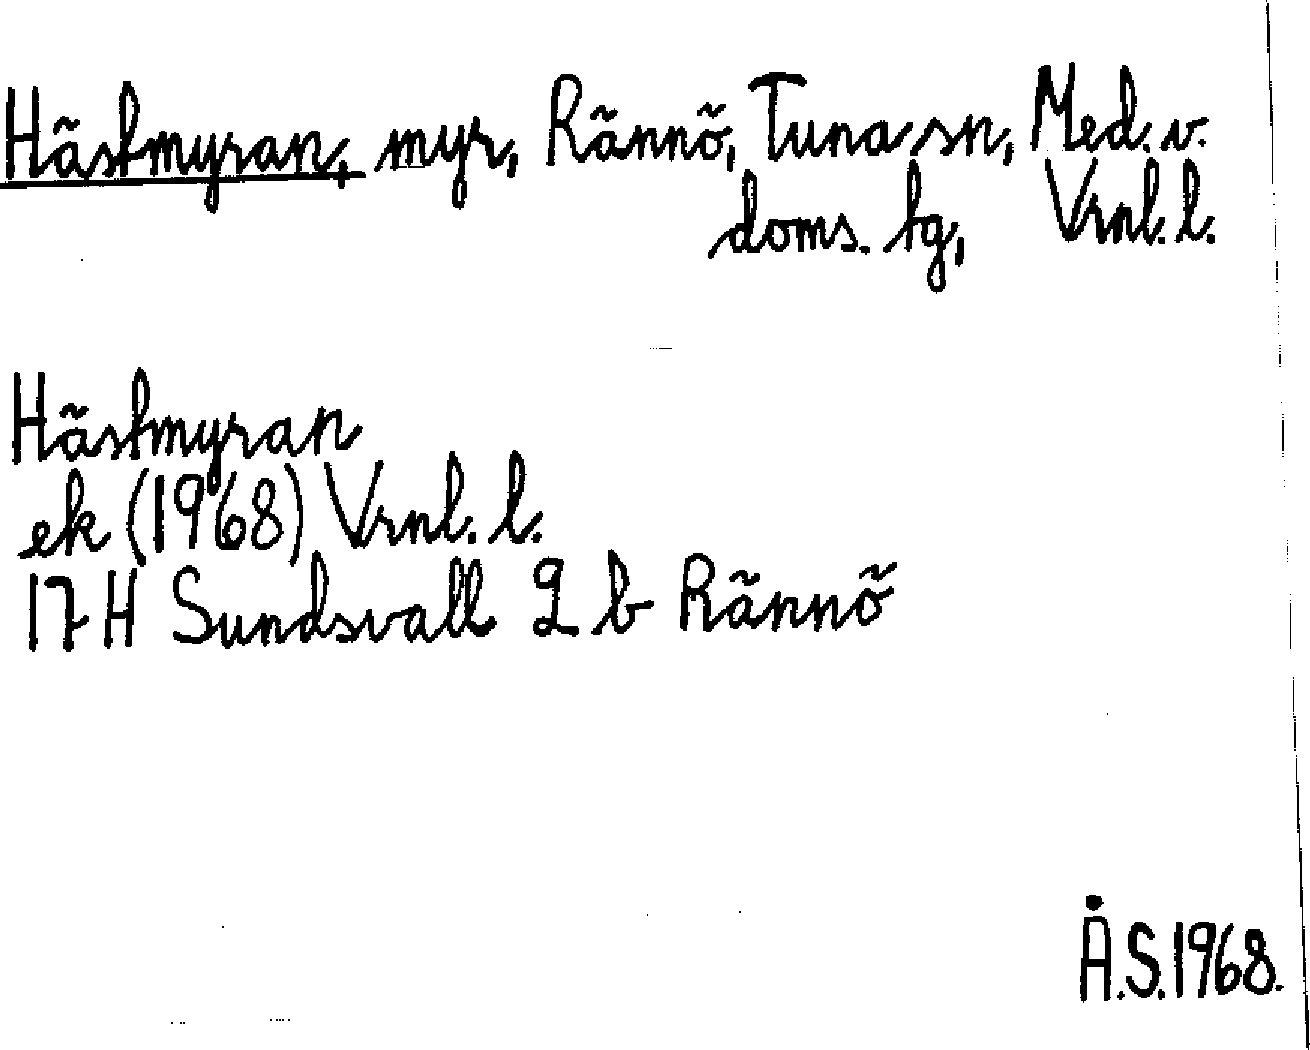 Hästmyran, myr, Rännö, Tuna sn, Med. v.
doms. tg, Vrnl. l.
Hästmyran
ek (1968) Vrnl. l.
17 H Sundsvall 2 b Rännö
Å.S. 1968.